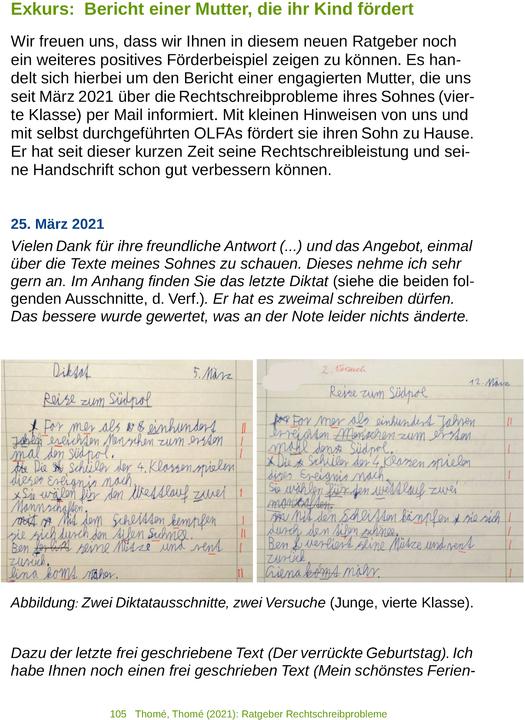 Exkurs: Bericht einer Mutter, die ihr Kind fördert
Wir freuen uns, dass wir Ihnen in diesem neuen Ratgeber noch
ein weiteres positives Förderbeispiel zeigen zu können. Es han-
delt sich hierbei um den Bericht einer engagierten Mutter, die uns
seit März 2021 über die Rechtschreibprobleme ihres Sohnes (vier-
te Klasse) per Mail informiert. Mit kleinen Hinweisen von uns und
mit selbst durchgeführten OLFAs fördert sie ihren Sohn zu Hause.
Er hat seit dieser kurzen Zeit seine Rechtschreibleistung und sei-
ne Handschrift schon gut verbessern können.
25. März 2021
Vielen Dank für ihre freundliche Antwort (...) und das Angebot, einmal
über die Texte meines Sohnes zu schauen. Dieses nehme ich sehr
gern an. Im Anhang finden Sie das letzte Diktat (siehe die beiden fol-
genden Ausschnitte, d. Verf.). Er hat es zweimal schreiben dürfen.
Das bessere wurde gewertet, was an der Note leider nichts änderte.
Diktat 5. März
Reise zum Südpol
For mer als einhundert
Jahren ereichten Menschen zum ersten
mal den Südpol.
Die Schüler der 4. Klassen spielen
dieses Ereignis nach.
Sie wälen für den Wettlauf zwei
Mannschaften.
Mit dem Scheitten kempfen
sie sich durch den tifen Schnee.
Ben seine Mütze und rent
zurück.
lina komt näher.
2. Versuch
12. März
Reise zum Südpol
For mer als einhundert Jahren
erreichten Menschen zum ersten
mahl den Südpol.
Die Schüler der 4. Klassen spielen
dises Ereignis nach.
Sie wählen für den Wettlauf zwei
Mit den Schlitten kämpfen sie sich
durch den tifen schne.
Ben verliert seine Mütze und rent
zurück.
komt nähr.
Abbildung: Zwei Diktatausschnitte, zwei Versuche (Junge, vierte Klasse).
Dazu der letzte frei geschriebene Text (Der verrückte Geburtstag). Ich
habe Ihnen noch einen frei geschrieben Text (Mein schönstes Ferien-
105 Thomé, Thomé (2021): Ratgeber Rechtschreibprobleme